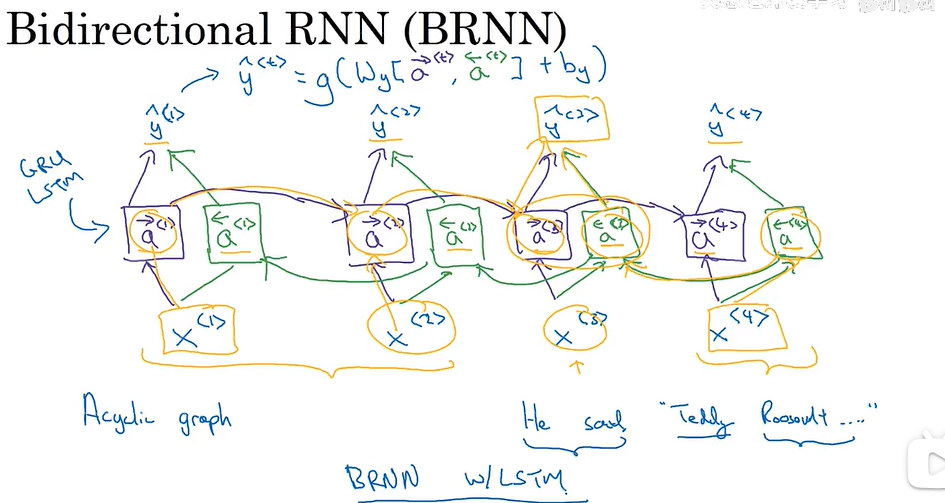 Bidirectional RNN (BRNN)
ŷ<t> = g(Wy[a→<t>, a←<t>] + by)
ŷ<1> ŷ<2> ŷ<3> ŷ<4>
GRU
LSTM
a→<1> a←<1> a→<2> a←<2> a→<3> a←<3> a→<4> a←<4>
x<1> x<2> x<3> x<4>
Acyclic graph
He said, "Teddy Roosevelt ...."
BRNN w/LSTM